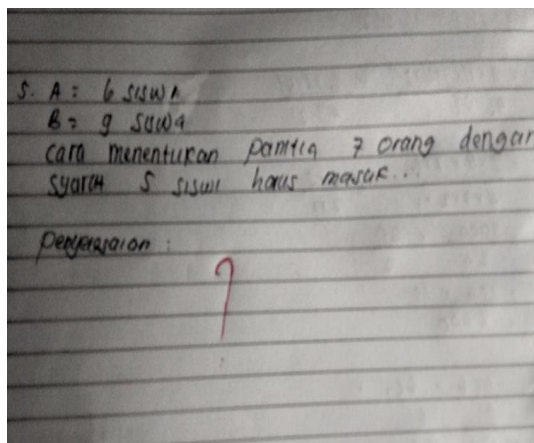 5. A = 6 siswa
B = 9 siswa
cara menentukan panitia 7 orang dengan
syarat 5 siswi harus masuk...
penyelesaian :
?